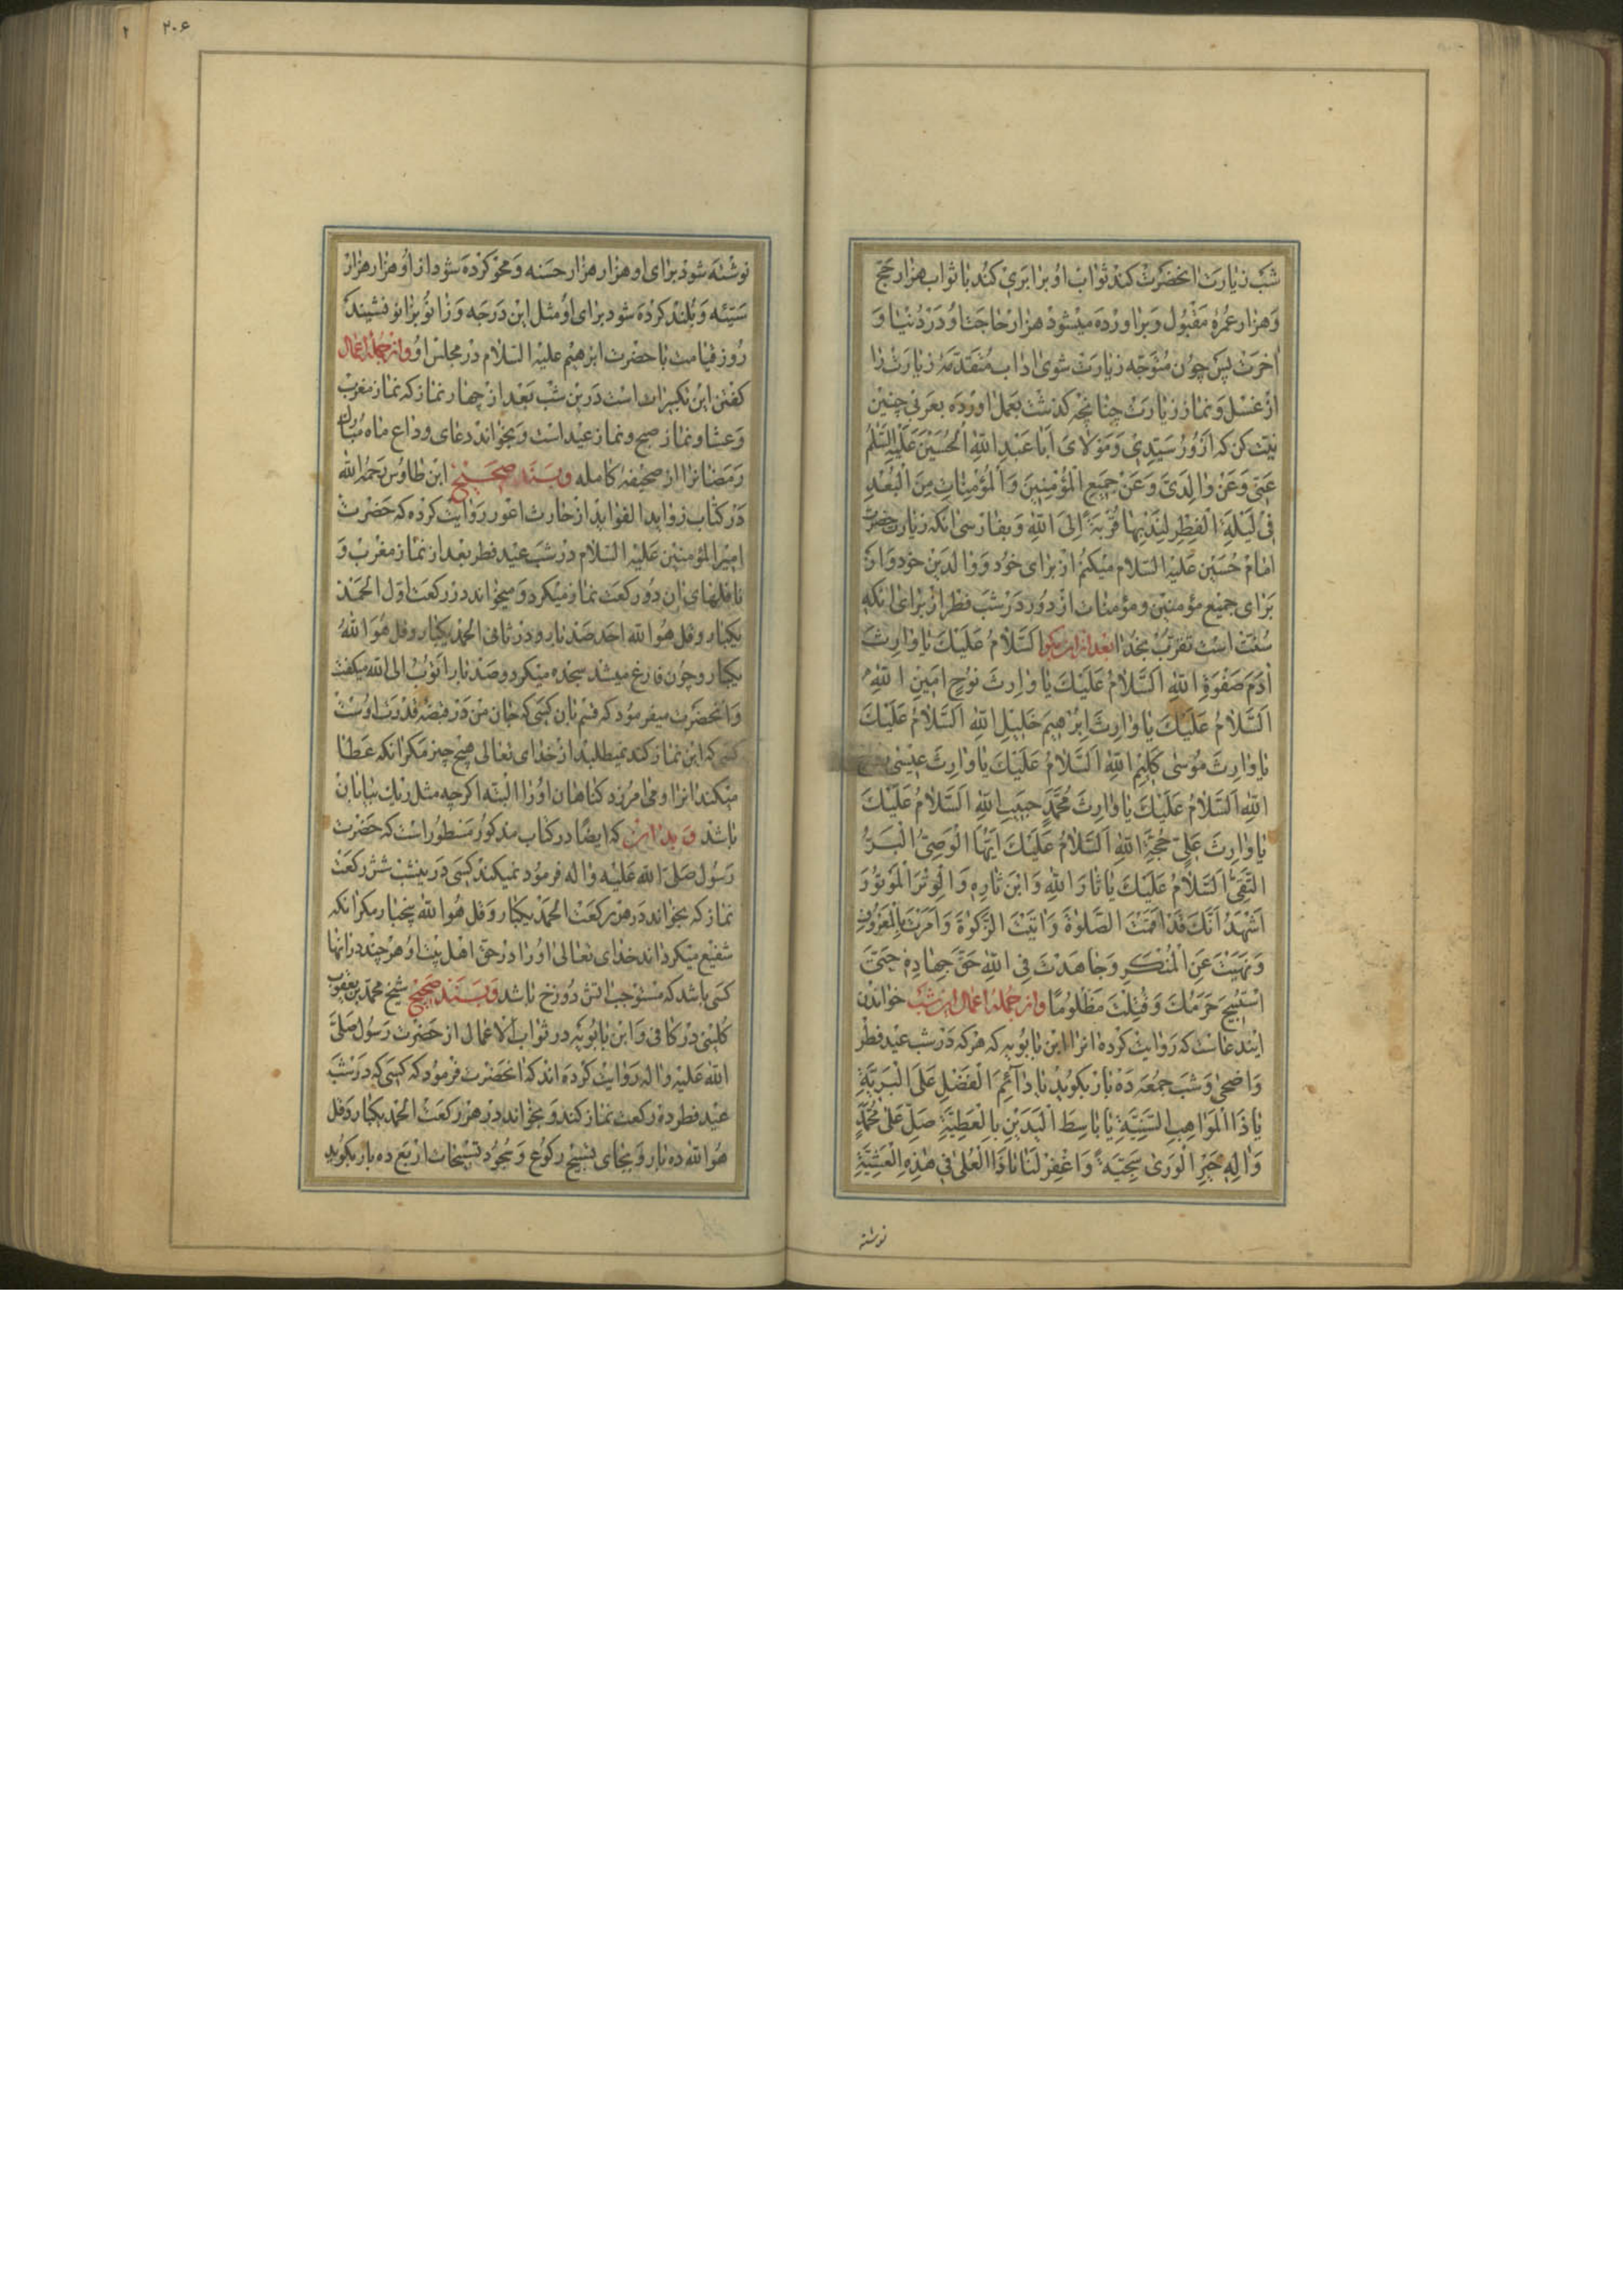 شب زیارت انحضرت کند ثواب او برابری کند با ثواب هزار حج
و هزار عمرهٔ مقبول و براورده میشود هزار حاجت او در دنیا و
اخرت پس چون متوجه زیارت شوی اداب متقدمهٔ زیارت را
از غسل و نماز زیارت چنانچه کذشت بعمل اورده بعربی چنین
نیت کن که اَزُورُ سَیِّدِی وَ مَوْلَایَ اَبَا عَبْدِ اللّٰهِ الْحُسَیْنَ عَلَیْهِ السَّلٰمُ
عَنِّی وَ عَنْ وٰالِدَیَّ وَ عَنْ جَمِیعِ الْمُؤْمِنِینَ وَ الْمُؤْمِنٰاتِ مِنَ الْبُعْدِ
فِی لَیْلَةِ الْفِطْرِ لِنَدْبِهٰا قُرْبَةً اِلَی اللّٰهِ و بفارسی انکه زیارت حضرت
امام حسین علیه السلام میکنم از برای خود و والدین خود و از
برای جمیع مؤمنین و مؤمنات از دور در شب فطر از برای انکه
سنت است تقرب بخدا بعد از ان بکو اَلسَّلٰامُ عَلَیْكَ یٰا وٰارِثَ
اٰدَمَ صَفْوَةِ اللّٰهِ اَلسَّلٰامُ عَلَیْكَ یٰا وٰارِثَ نُوْحٍ اَمِینِ اللّٰهِ
اَلسَّلٰامُ عَلَیْكَ یٰا وٰارِثَ اِبْرٰهِیمَ خَلِیلِ اللّٰهِ اَلسَّلٰامُ عَلَیْكَ
یٰا وٰارِثَ مُوسٰی کَلِیْمِ اللّٰهِ اَلسَّلٰامُ عَلَیْكَ یٰا وٰارِثَ عِیسٰی رُوحِ
اللّٰهِ اَلسَّلٰامُ عَلَیْكَ یٰا وٰارِثَ مُحَمَّدٍ حَبِیبِ اللّٰهِ اَلسَّلٰامُ عَلَیْكَ
یٰا وٰارِثَ عَلِیٍّ حُجَّةِ اللّٰهِ اَلسَّلٰامُ عَلَیْكَ اَیُّهَا الْوَصِیُّ الْبَرُّ
التَّقِیُّ اَلسَّلٰامُ عَلَیْكَ یٰا ثٰارَ اللّٰهِ وَ ابْنَ ثٰارِهِ وَ الْوِتْرَ الْمَوْتُوْرَ
اَشْهَدُ اَنَّكَ قَدْ اَقَمْتَ الصَّلٰوةَ وَ اٰتَیْتَ الزَّکٰوةَ وَ اَمَرْتَ بِالْمَعْرُوْفِ
وَ نَهَیْتَ عَنِ الْمُنْکَرِ وَ جٰاهَدْتَ فِی اللّٰهِ حَقَّ جِهٰادِهِ حَتّٰی
اسْتُبِیحَ حَرَمُكَ وَ قُتِلْتَ مَظْلُومًا و از جملهٔ اعمال این شب خواندن
ایندعاست که روایت کرده انرا ابن بابویه که هر که در شب عید فطر
و اضحی و شب جمعه ده بار بکوید یٰا دٰآئِمَ الْفَضْلِ عَلَی الْبَرِیَّةِ
یٰا ذَا الْمَوٰاهِبِ السَّنِیَّةِ یٰا بٰاسِطَ الْیَدَیْنِ بِالْعَطِیَّةِ صَلِّ عَلٰی مُحَمَّدٍ
وَ اٰلِهِ خَیْرِ الْوَرٰی سَجِیَّةً وَ اغْفِرْ لَنٰا یٰا ذَا الْعُلٰی فِی هٰذِهِ الْعَشِیَّةِ
نوشته
۲۰۶
۲
نوشته شود برای او هزار هزار حسنه و محو کرده شود از او هزار هزار
سیئه و بلند کرده شود برای او مثل این درجه و زانو بزانو نشیند
روز قیامت با حضرت ابرهیم علیه السلام در مجلس او و از جملهٔ اعمال
کفتن این تکبیرات است درین شب بعد از چهار نماز که نماز مغرب
و عشا و نماز صبح و نماز عید است و بخواند دعای وداع ماه مبارک
رمضانرا از صحیفهٔ کامله و بسند صحیح ابن طاوس رحمه الله
در کتاب زواید الفواید از حارث اعور روایت کرده که حضرت
امیر المؤمنین علیه السلام در شب عید فطر بعد از نماز مغرب و
نافلهای ان دو رکعت نماز میکرد و میخواند در رکعت اول الحمد
یکبار و قل هو الله احد صد بار و در ثانی الحمد یکبار و قل هو الله
یکبار و چون فارغ میشد سجده میکرد و صد بار اتوب الی الله میکفت
و انحضرت میفرمود که قسم بان کسی که جان من در قبضهٔ قدرت اوست
کسی که این نماز کند نمیطلبد از خدای تعالی هیچ چیز مکر انکه عطا
میکند انرا و می امرزد کناهان او را البته اکرچه مثل ریك بیابان
باشد و بدان که ایضًا در کتاب مذکور مسطور است که حضرت
رسول صلی الله علیه و اله فرمود نمیکند کسی درینشب شش رکعت
نماز که بخواند در هر رکعت الحمد یکبار و قل هو الله پنجبار مکر انکه
شفیع میکرداند خدای تعالی او را در حق اهل بیت او هر چند در انها
کسی باشد که مستوجب اتش دوزخ باشد و بسند صحیح شیخ محمد بن یعقوب
کلینی در کافی و ابن بابویه در ثواب الاعمال از حضرت رسول صلی
الله علیه و اله روایت کرده اند که انحضرت فرمود که کسی که در شب
عید فطر ده رکعت نماز کند و بخواند در هر رکعت الحمد یکبار و قل
هو الله ده بار و بجای تسبیح رکوع و سجود تسبیحات اربع ده بار بکوید